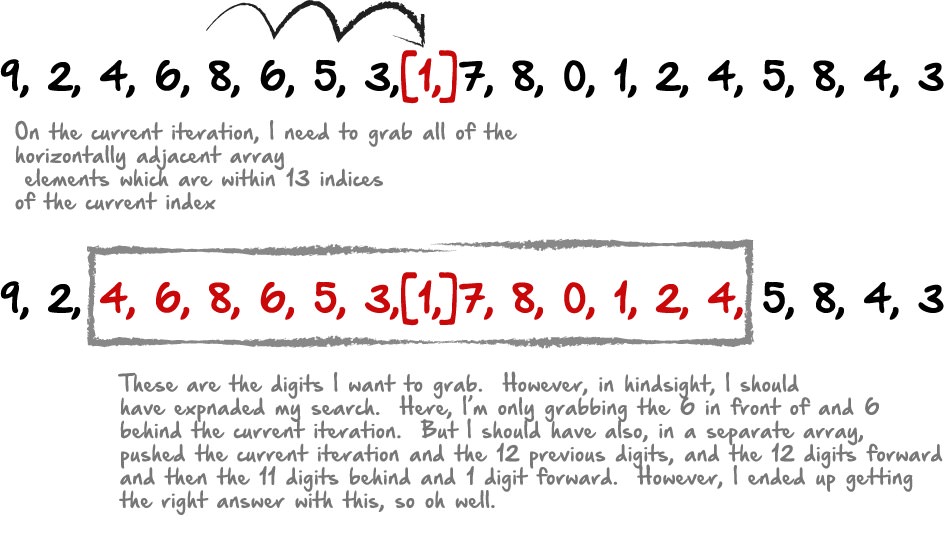 9, 2, 4, 6, 8, 6, 5, 3,[1,]7, 8, 0, 1, 2, 4, 5, 8, 4, 3
On the current iteration, I need to grab all of the
horizontally adjacent array
elements which are within 13 indices
of the current index
9, 2, 4, 6, 8, 6, 5, 3,[1,]7, 8, 0, 1, 2, 4, 5, 8, 4, 3
These are the digits I want to grab. However, in hindsight, I should
have expnaded my search. Here, I'm only grabbing the 6 in front of and 6
behind the current iteration. But I should have also, in a separate array,
pushed the current iteration and the 12 previous digits, and the 12 digits forward
and then the 11 digits behind and 1 digit forward. However, I ended up getting
the right answer with this, so oh well.